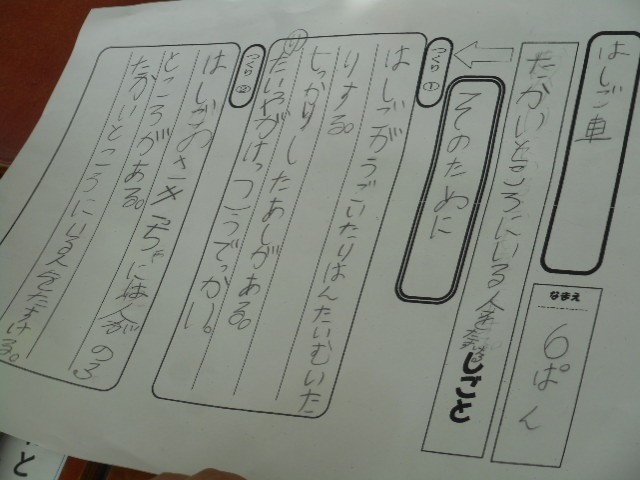 はしご車
なまえ
6ぱん
たかいところにいる人をたすけるしごと
そのために
つくり①
はしごがうごいたりはんたいむいた
りする。
しっかりしたあしがある。
たいやがけっこうでっかい。
つくり②
はしごのさきっちゃには人がのる
ところがある。
たかいところにいる人をたすける。